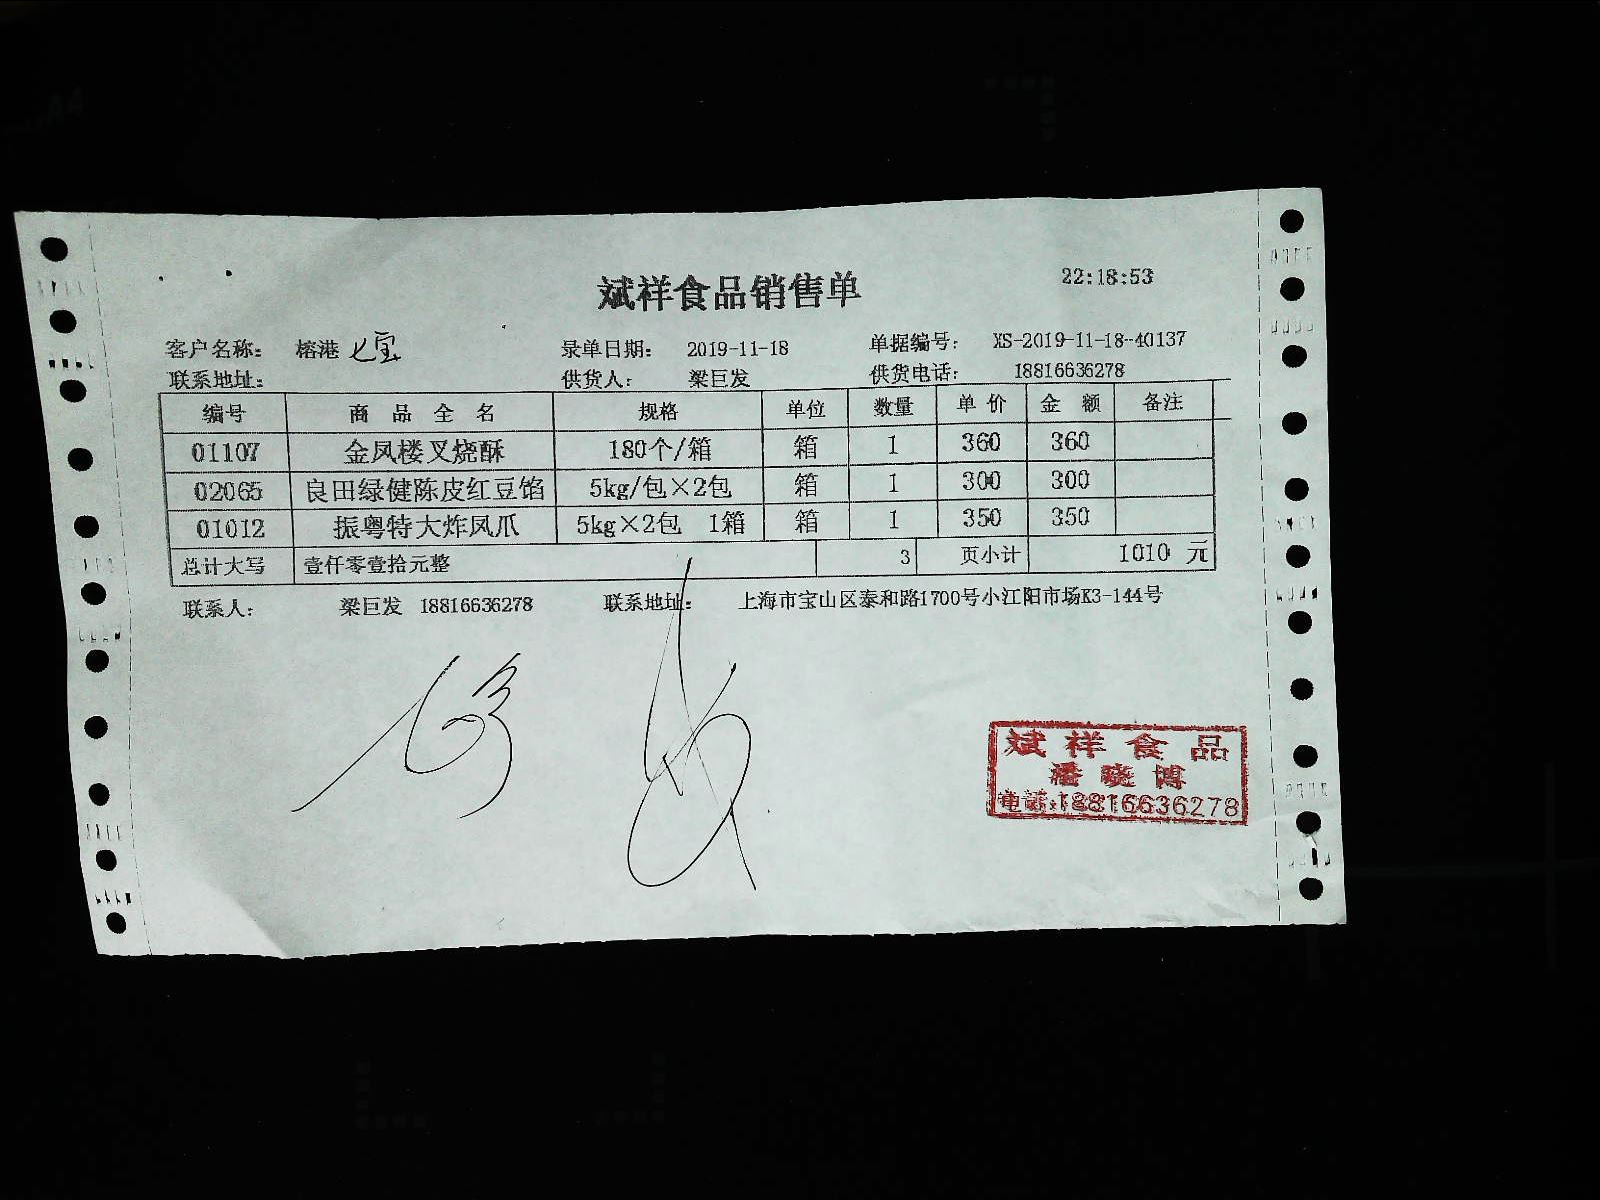 斌祥食品销售单
22:18:53
客户名称： 榕港 七宝 录单日期： 2019-11-18 单据编号： XS-2019-11-18-40137
联系地址： 供货人： 梁巨发 供货电话： 18816636278
编号 商品全名 规格 单位 数量 单价 金额 备注
01107 金凤楼叉烧酥 180个/箱 箱 1 360 360
02065 良田绿健陈皮红豆馅 5kg/包×2包 箱 1 300 300
01012 振粤特大炸凤爪 5kg×2包 1箱 箱 1 350 350
总计大写 壹仟零壹拾元整 3 页小计 1010 元
联系人： 梁巨发 18816636278 联系地址： 上海市宝山区泰和路1700号小江阳市场K3-144号
斌祥食品
潘晓博
电话:18816636278